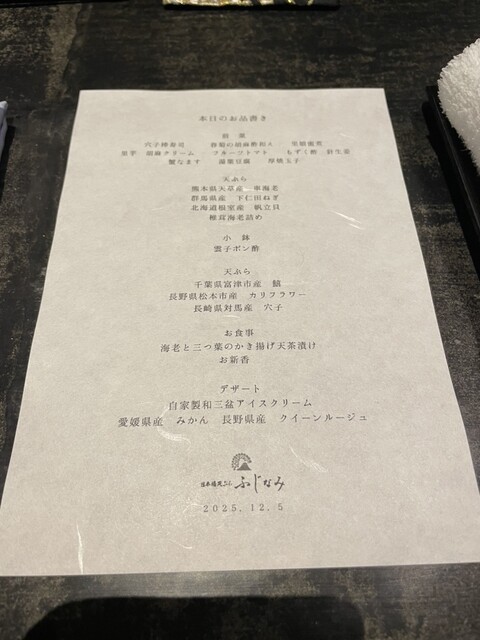 本日のお品書き
前菜
穴子棒寿司 春菊の胡麻酢和え
里芋 胡麻クリーム フルーツトマト もずく酢 針生姜
蟹なます 湯葉豆腐 厚焼玉子
天ぷら
熊本県天草産 車海老
群馬県産 下仁田ねぎ
北海道根室産 帆立貝
椎茸海老詰め
小鉢
雲子ポン酢
天ぷら
千葉県富津市産 鱚
長野県松本市産 カリフラワー
長崎県対馬産 穴子
お食事
海老と三つ葉のかき揚げ天茶漬け
お新香
デザート
自家製和三盆アイスクリーム
愛媛県産 みかん 長野県産 クイーンルージュ
ふじなみ
2025.12.5